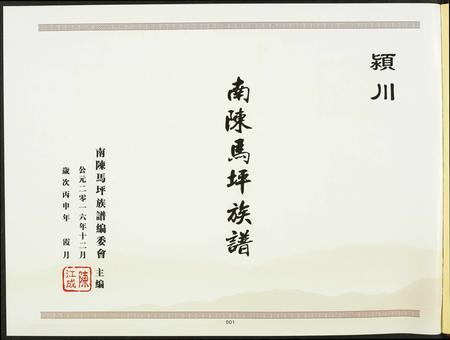 潁川
南陳馬坪族譜
南陳馬坪族譜編委會 主編
公元二零一六年十二月
歲次丙申年 霞月
陳江成
001